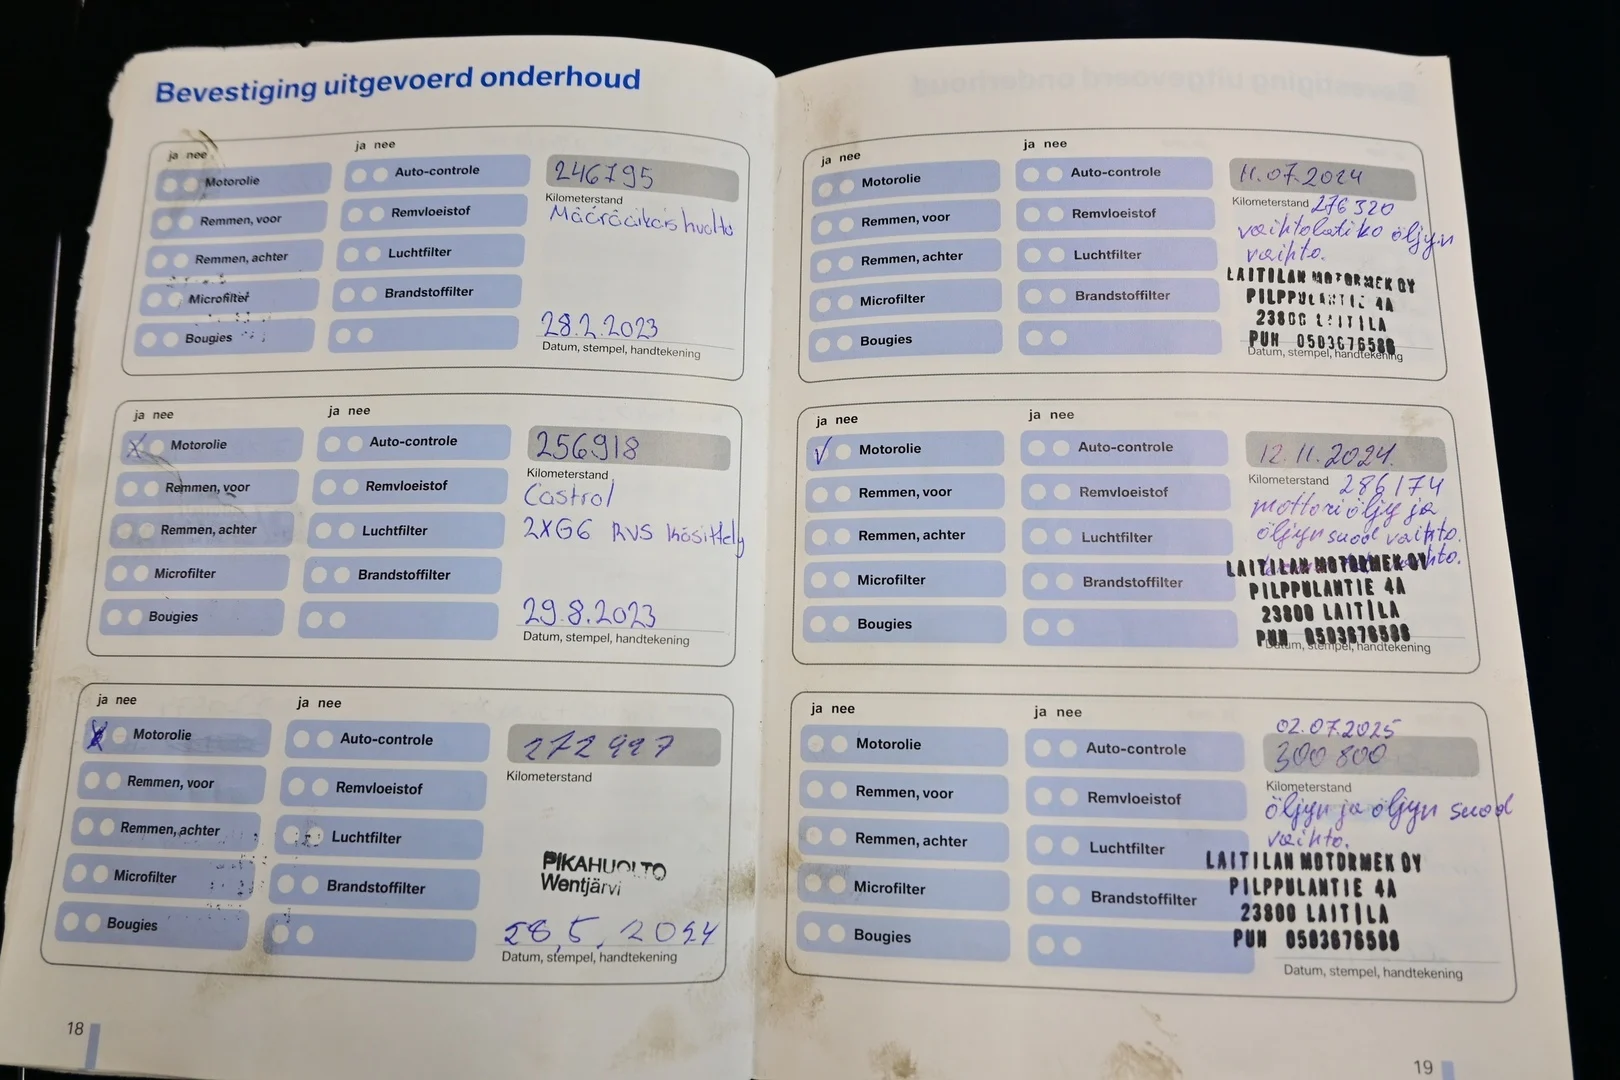 Bevestiging uitgevoerd onderhoud
ja nee
Motorolie
Remmen, voor
Remmen, achter
Microfilter
Bougies
ja nee
Auto-controle
Remvloeistof
Luchtfilter
Brandstoffilter
246795
Kilometerstand
Määräaikaishuolto
28.2.2023
Datum, stempel, handtekening
ja nee
X Motorolie
Remmen, voor
Remmen, achter
Microfilter
Bougies
ja nee
Auto-controle
Remvloeistof
Luchtfilter
Brandstoffilter
256918
Kilometerstand
Castrol
2XG6 RVS käsittely
29.8.2023
Datum, stempel, handtekening
ja nee
X Motorolie
Remmen, voor
Remmen, achter
Microfilter
Bougies
ja nee
Auto-controle
Remvloeistof
Luchtfilter
Brandstoffilter
272997
Kilometerstand
PIKAHUOLTO
Wentjärvi
28,5. 2024
Datum, stempel, handtekening
18
ja nee
Motorolie
Remmen, voor
Remmen, achter
Microfilter
Bougies
ja nee
Auto-controle
Remvloeistof
Luchtfilter
Brandstoffilter
11.07.2024
Kilometerstand 276320
vaihtolatiko öljyn
vaihto.
LAITILAN MOTORMEK OY
PILPPULANTIE 4A
23800 LAITILA
PUH 0503676588
Datum, stempel, handtekening
ja nee
Motorolie
Remmen, voor
Remmen, achter
Microfilter
Bougies
ja nee
Auto-controle
Remvloeistof
Luchtfilter
Brandstoffilter
12.11.2024.
Kilometerstand 286174
mottoriöljy ja
öljyn suod vaihto.
LAITILAN MOTORMEK OY
PILPPULANTIE 4A
23800 LAITILA
PUH 0503676588
Datum, stempel, handtekening
ja nee
Motorolie
Remmen, voor
Remmen, achter
Microfilter
Bougies
ja nee
Auto-controle
Remvloeistof
Luchtfilter
Brandstoffilter
02.07.2025
300800
Kilometerstand
öljyn ja öljyn suod
vaihto.
LAITILAN MOTORMEK OY
PILPPULANTIE 4A
23800 LAITILA
PUH 0503676588
Datum, stempel, handtekening
19